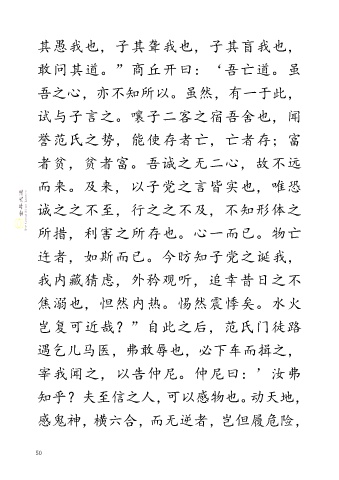 其愚我也，子其聋我也，子其盲我也，
敢问其道。”商丘开曰：‘吾亡道。虽
吾之心，亦不知所以。虽然，有一于此，
试与子言之。嚷子二客之宿吾舍也，闻
誉范氏之势，能使存者亡，亡者存；富
者贫，贫者富。吾诚之无二心，故不远
而来。及来，以子党之言皆实也，唯恐
诚之之不至，行之之不及，不知形体之
所措，利害之所存也。心一而已。物亡
迕者，如斯而已。今昉知子党之诞我，
我内藏猜虑，外矜观听，追幸昔日之不
焦溺也，怛然内热。惕然震悸矣。水火
岂复可近哉？”自此之后，范氏门徒路
遇乞儿马医，弗敢辱也，必下车而揖之，
宰我闻之，以告仲尼。仲尼曰：’汝弗
知乎？夫至信之人，可以感物也。动天地，
感鬼神，横六合，而无逆者，岂但履危险，
50